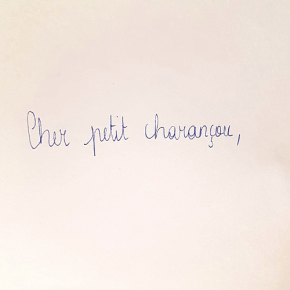 Cher petit charançou,